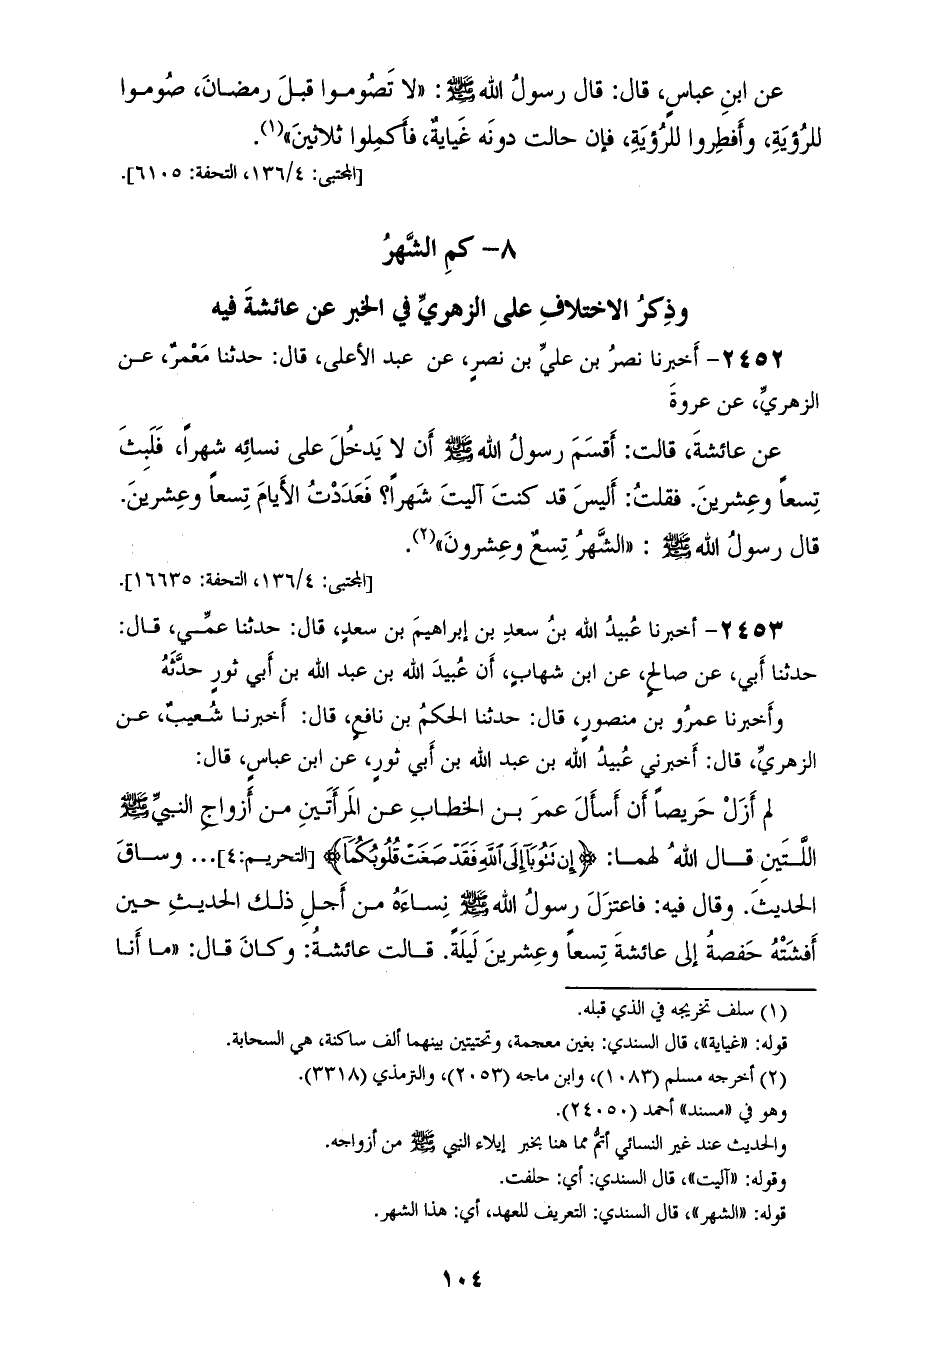 عن ابنِ عباسٍ، قال: قال رسولُ الله ﷺ: «لا تَصُوموا قبلَ رمضانَ، صُوموا
للرُؤيَةِ، وأَفطِروا للرُؤيَةِ، فإن حالت دونَه غَيايةٌ، فأَكمِلوا ثلاثينَ»(١).
[المجتبى: ١٣٦/٤، التحفة: ٦١٠٥].
٨- كمِ الشَّهرُ
وذِكرُ الاختلافِ على الزهريِّ في الخبر عن عائشةَ فيه
٢٤٥٢- أخبرنا نصرُ بن عليِّ بن نصرٍ، عن عبد الأعلى، قال: حدثنا مَعْمرٌ، عـن
الزهريِّ، عن عروةَ
عن عائشةَ، قالت: أَقسَمَ رسولُ الله ﷺ أن لا يَدخُلَ على نسائِه شهراً، فَلَبِثَ
تِسعاً وعِشرينَ. فقلتُ: أَليسَ قد كنتَ آليتَ شَهراً؟ فعَدَدْتُ الأيامَ تِسعاً وعِشرينَ.
قال رسولُ الله ﷺ : «الشَّهرُ تِسعٌ وعِشرونَ»(٢).
[المجتبى: ١٣٦/٤، التحفة: ١٦٦٣٥].
٢٤٥٣- أخبرنا عُبيدُ الله بنُ سعدِ بن إبراهيمَ بن سعدٍ، قال: حدثنا عمِّـي، قـال:
حدثنا أبي، عن صالحٍ، عن ابن شهابٍ، أن عُبيدَ الله بن عبد الله بن أبي ثورٍ حدَّثَهُ
وأخبرنا عمرُو بن منصورٍ، قال: حدثنا الحكمُ بن نافعٍ، قال: أخبرنـا شُـعيبٌ، عـن
الزهريِّ، قال: أخبرني عُبيدُ الله بن عبد الله بن أبي ثورٍ، عن ابن عباسٍ، قال:
لم أَزَلْ حَريصاً أن أَسأَلَ عمرَ بـن الخطاب عـن المَرأَتَينِ مـن أَزواجِ النبيِّ ﷺ
اللَّتَينِ قـال اللهُ لهمـا: ﴿إِن تَتُوبَآ إِلَى ٱللَّهِ فَقَدْ صَغَتْ قُلُوبُكُمَا﴾ [التحريم:٤]... وسـاقَ
الحديثَ. وقال فيه: فاعتزَلَ رسولُ الله ﷺ نِساءَهُ مـن أَجلِ ذلـك الحديـثِ حـين
أَفشَتْهُ حَفصةُ إلى عائشةَ تِسعاً وعِشرينَ لَيلَةً. قـالت عائشـةُ: وكـانَ قال: «مـا أنـا
(١) سلف تخريجه في الذي قبله.
قوله: «غياية»، قال السندي: بغين معجمة، وتحتيتين بينهما ألف ساكنة، هي السحابة.
(٢) أخرجه مسلم (١٠٨٣)، وابن ماجه (٢٠٥٣)، والترمذي (٣٣١٨).
وهو في «مسند» أحمد (٢٤٠٥٠).
والحديث عند غير النسائي أتمُّ مما هنا بخبر إيلاء النبي ﷺ من أزواجه.
وقوله: «آليت»، قال السندي: أي: حلفت.
قوله: «الشهر»، قال السندي: التعريف للعهد، أي: هذا الشهر.
١٠٤